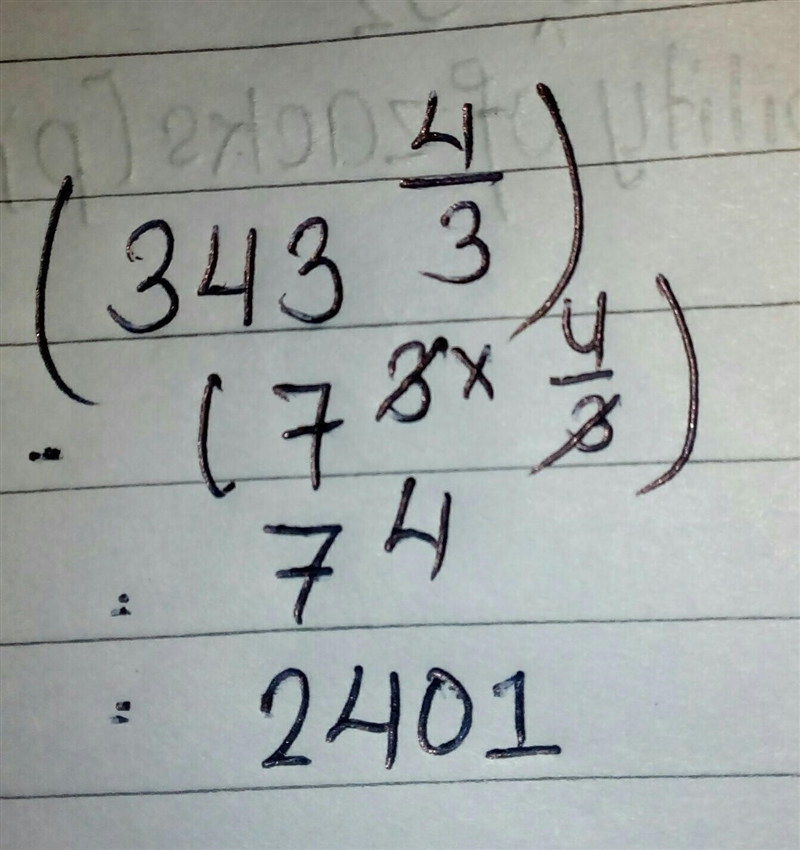 (343^(4/3))
= (7^(3 × 4/3))
= 7^4
= 2401